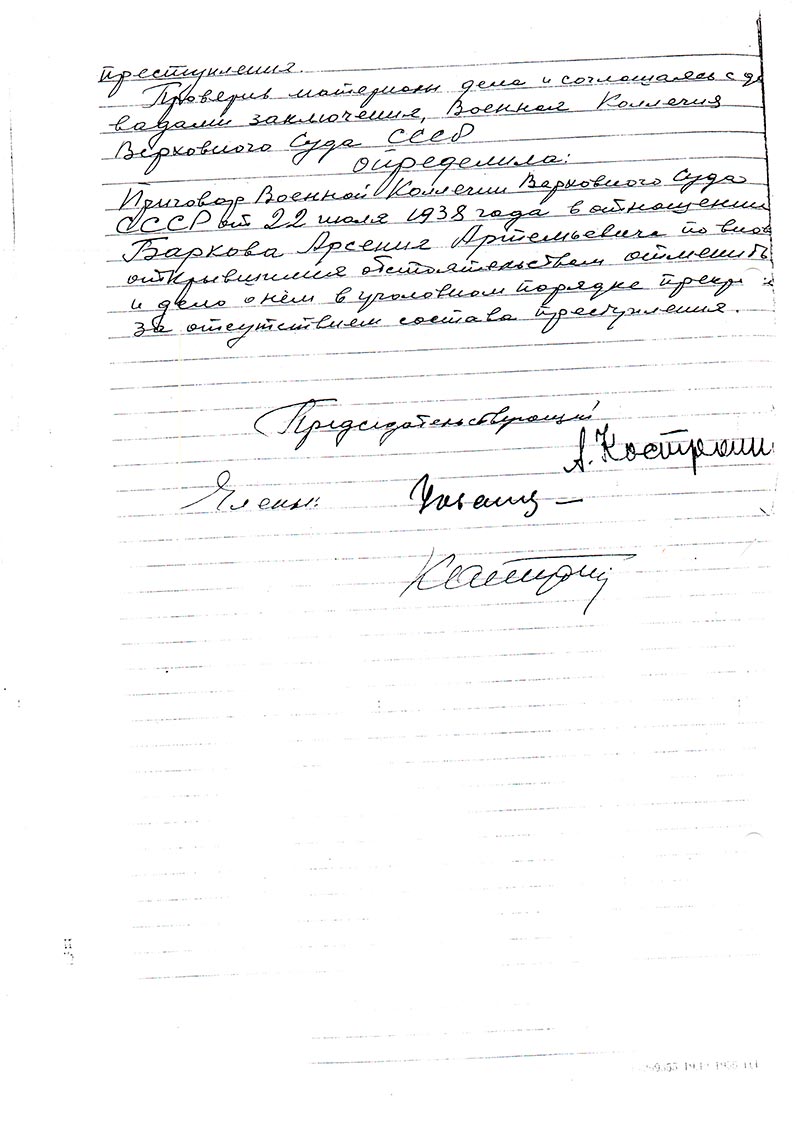 преступления.
Проверив материалы дела и соглашаясь с до
водами заключения, Военная Коллегия
Верховного Суда СССР
определила:
Приговор Военной Коллегии Верховного Суда
СССР от 22 июля 1938 года в отношении
Баркова Арсения Артемьевича по внов
открывшимся обстоятельствам отменить
и дело о нём в уголовном порядке прекр
за отсутствием состава преступления.
Председательствующий
А. Костромин
Члены: